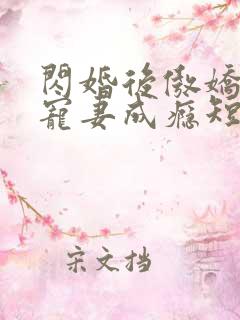 閃婚後傲嬌
寵妻成癮短
宋文挡